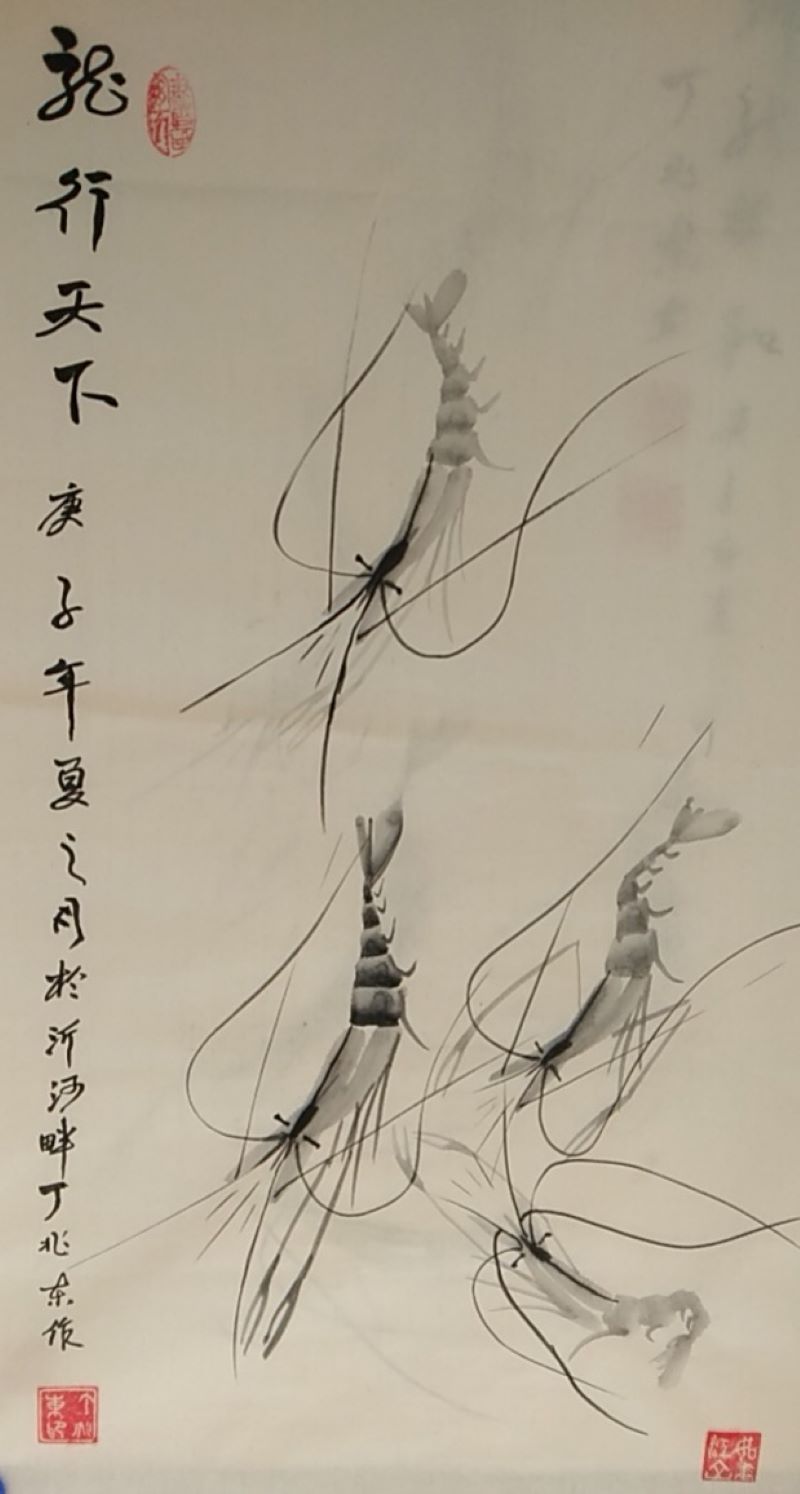 龙行天下 庚子年夏之月於沂河畔丁兆东作